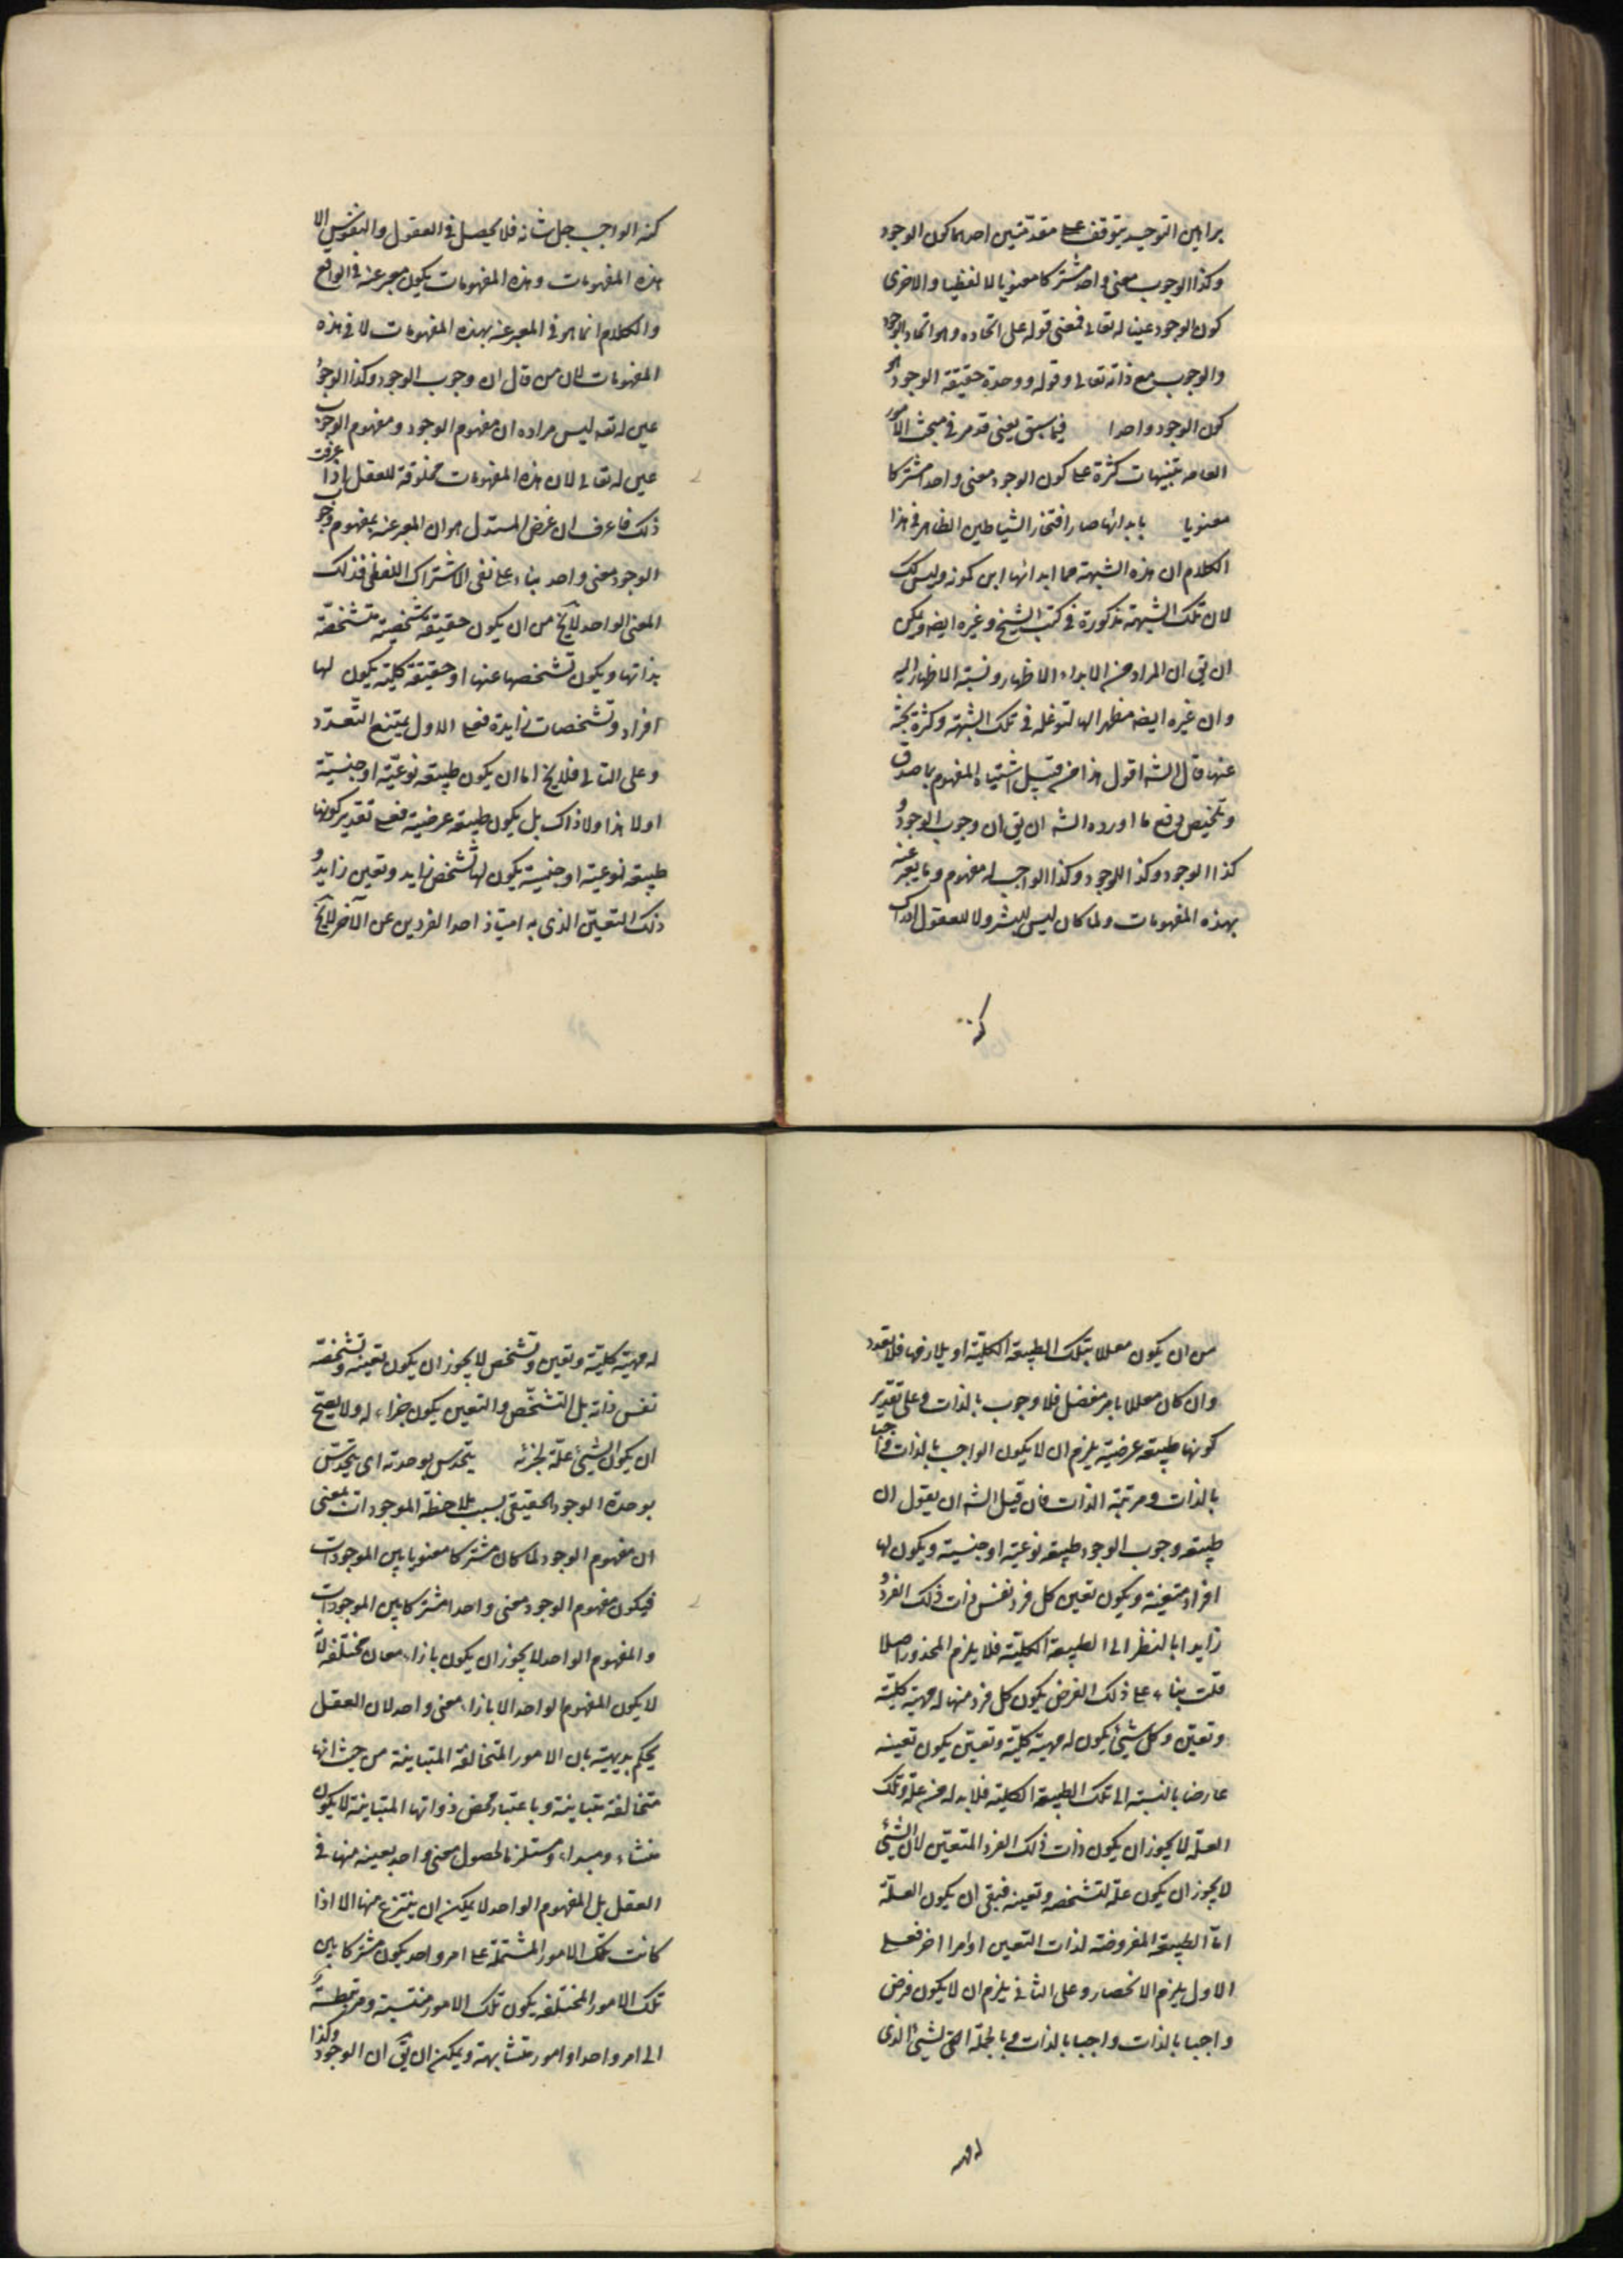 براهين التوحيد يتوقف على مقدمتين احدهما كون الوجود
وكذا الوجوب معنى واحد مشتركا معنويا لا لفظيا والاخرى
كون الوجود عينا له تعالى فمعنى قوله على اتحاده هو اتحاد الوجود
والوجوب مع ذاته تعالى وقوله ووحدة حقيقة الوجود هو
كون الوجود واحدا فيما سبق يعنى قد مر فى مبحث الامور
العامه تنبيهات كثرة على كون الوجود معنى واحدا مشتركا
معنويا بابدائها صار افتخار الشياطين الظاهر فى هذا
الكلام ان هذه الشبهة مما ابدائها ابن كمونه وليس كك
لان تلك الشبهة مذكورة فى كتب الشيخ وغيره ايضه ويمكن
ان يق ان المراد من الابداء الاظهار ونسبة الاظهار اليه
وان غيره ايضه مظهر الها لتوغله فى تلك الشبهة وكثرة بحثه
عنها قال الشه اقول هذا من قبيل اشتباه المفهوم بما صدق
وتلخيص دفع ما اورده الشه ان يق ان وجوب الوجود و
كذا الوجود وكذا الموجود وكذا الواجب له مفهوم وما يعبر عنه
بهذه المفهومات ولما كان ليس للبشر ولا للعقول ادراك
كنه
كنه الواجب جل شانه فلا يحصل فى العقول والنفوس الا
هذه المفهومات وهذه المفهومات يكون معبر عنه فى الواقع
والكلام انما هو فى المعبر عنه بهذه المفهومات لا فى هذه
المفهومات لان من قال ان وجوب الوجود وكذا الوجود
عين له تعه ليس مراده ان مفهوم الوجود ومفهوم الوجوب
عين له تعالى لان هذه المفهومات مخلوقة للعقل اذا عرفت
ذلك فاعرف ان غرض المستدل هو ان المعبر عنه بمفهوم وجوب
الوجود معنى واحد بناء على نفى الاشتراك اللفظى فذلك
المعنى الواحد لايخ من ان يكون حقيقة شخصية متشخصة
بذاتها ويكون تشخصها عنها او حقيقة كلية يكون لها
افراد وتشخصات زايدة فعلى الاول يمتنع التعدد
وعلى الثانى فلايخ اما ان يكون طبيعه نوعية او جنسية
او لا هذا ولا ذاك بل يكون طبيعه عرضية فعلى تقدير كونها
طبيعه نوعية او جنسية يكون لها تشخص زايد وتعين زايد و
ذلك التعين الذى به امتياز احد الفردين عن الآخر لايخ
من ان يكون معللا بتلك الطبيعة الكلية او بلازمها فلا تعدد
وان كان معللا بامر منفصل فلا وجوب بالذات وعلى تقدير
كونها طبيعه عرضية يلزم ان لا يكون الواجب بالذات واجبا
بالذات ومرتبة الذات فان قيل الشه ان يقول ان
طبيعه وجوب الوجود طبيعه نوعية او جنسية ويكون لها
افراد متعينة ويكون تعين كل فرد نفس ذات ذلك الفرد و
زايدا بالنظر الى الطبيعة الكلية فلا يلزم المحذور اصلا
قلت بناء على ذلك الفرض يكون كل فرد منها له مهية كلية
وتعين وكل شيئ يكون له مهية كلية وتعين يكون تعينه
عارضا بالنسبة الى تلك الطبيعة الكلية فلا بد له من علة وتلك
العلة لا يجوز ان يكون ذات ذلك الفرد المتعين لان الشيئ
لا يجوز ان يكون علة لتشخصه وتعينه فبقى ان يكون العلة
اما الطبيعة المفروضة لذات التعين او امرا اخر فعلى
الاول يلزم الانحصار وعلى الثانى يلزم ان لا يكون فرض
واجبا بالذات واجبا بالذات وبالجملة الشيئ الذى
له مهية
له مهية كلية وتعين وتشخص لا يجوز ان يكون تعينه وتشخصه
نفس ذاته بل التشخص والتعين يكون جزاء له ولا يصح
ان يكون الشيئ علة لجزئه يتحدس بوحدته اى يتحدس
بوحدة الوجود الحقيقى بسبب ملاحظة الموجودات بمعنى
ان مفهوم الوجود لما كان مشتركا معنويا بين الموجودات
فيكون مفهوم الوجود معنى واحدا مشتركا بين الموجودات
والمفهوم الواحد لا يجوز ان يكون بازاء معان مختلفة بل
لا يكون المفهوم الواحد الا بازاء معنى واحد لان العقل
يحكم بديهية بان الامور المتخالفة المتباينة من حيث انها
متخالفة متباينة وباعتبار محض ذواتها المتباينة لا يكون
منشاء ومبداء ومستلزما لحصول معنى واحد بعينه منها فى
العقل بل المفهوم الواحد لا يمكن ان ينتزع منها الا اذا
كانت تلك الامور المشتملة على امر واحد يكون مشتركا بين
تلك الامور المختلفه يكون تلك الامور منتسبة ومرتبطة
الى امر واحد او امور متشابهة ويمكن ان يق ان الوجود وكذا